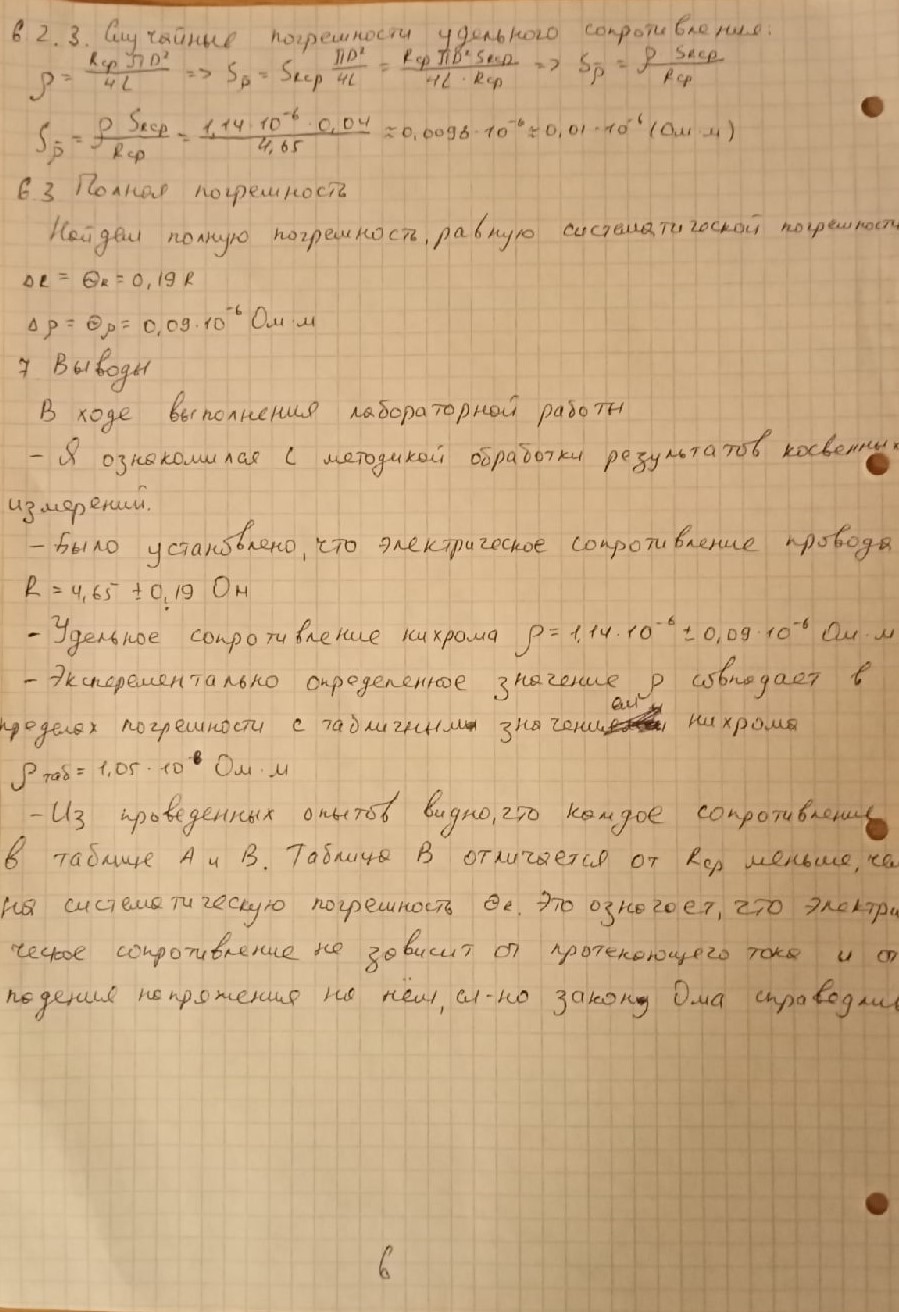 6 2.3. Случайные погрешности удельного сопротивления:
ρ = Rср ПD² / 4L => Sρ̄ = SRср ПD² / 4L = Rср ПD² SRср / 4L · Rср => Sρ̄ = ρ SRср / Rср
Sρ̄ = ρ SRср / Rср = 1,14·10⁻⁶ · 0,04 / 4,65 ≈ 0,0098·10⁻⁶ ≈ 0,01·10⁻⁶ (Ом·м)
6.3 Полная погрешность
Найдем полную погрешность, равную систематической погрешности
ΔR = ΘR = 0,19 R
Δρ = Θρ = 0,09·10⁻⁶ Ом·м
7 Выводы
В ходе выполнения лабораторной работы
– Я ознакомилая с методикой обработки результатов косвенных
измерений.
– Было установлено, что электрическое сопротивление провода
R = 4,65 ± 0,19 Ом
– Удельное сопротивление нихрома ρ = 1,14·10⁻⁶ ± 0,09·10⁻⁶ Ом·м
– Эксперементально определенное значение ρ совпадает в
пределах погрешности с табличными значениям нихрома
ρтаб = 1,05·10⁻⁶ Ом·м
– Из проведенных опытов видно, что каждое сопротивление
в таблице А и В. Таблица В отличается от Rср меньше, че
на систематическую погрешность ΘR. Это означает, что электри
ческое сопротивление не зависит от протекающего тока и от
падения напряжения на нём, сл-но закону Ома справедлив
6